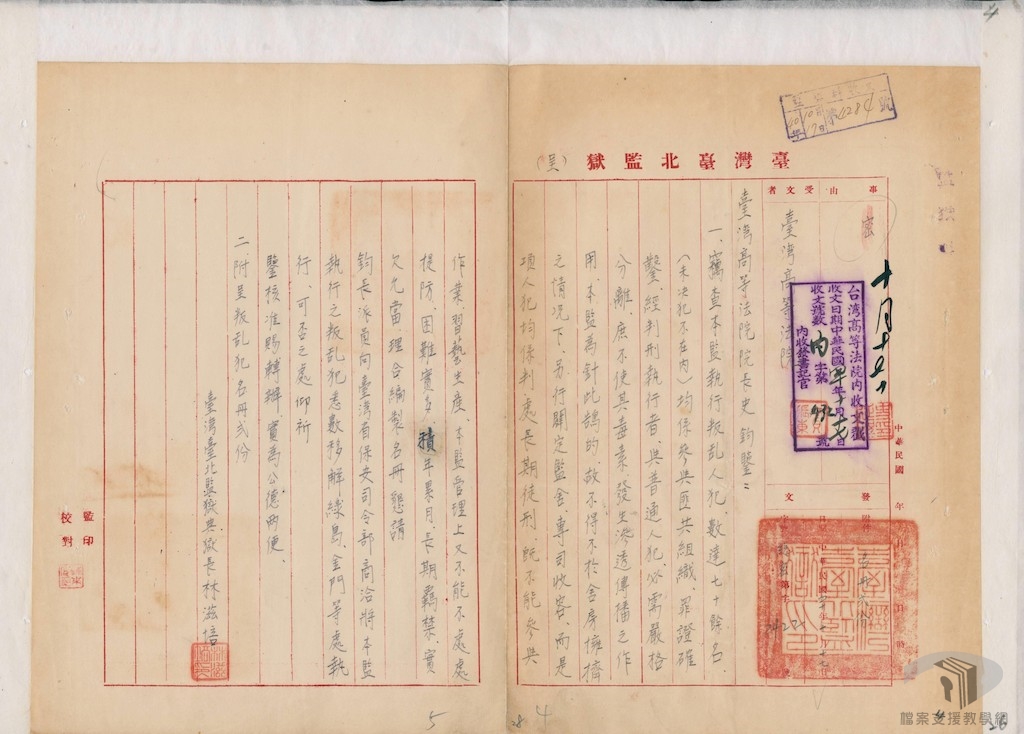 4
臺灣臺北監獄（呈）
事由
受文者
密
臺灣高等法院
十月十七
台湾高等法院內收文戳
收文日期中華民國
收文號數 內 字第 號
內收發書記官
中華民國 年
發文
附件
臺灣高等法院院長史鈞鑒：
一、竊查本監執行叛乱人犯、數達七十餘名、
（未決犯不在內）均係參與匪共組織、罪證確
鑿、經判刑執行者、與普通人犯、必需嚴格
分離、庶不使其毒素發生滲透傳播之作
用、本監為針此鵠的、故不得不於舍房擁擠
之情況下、另行關定監舍、專司收容、而是
項人犯均係判處長期徒刑、既不能參與
作業、習藝生產、本監管理上又不能不處處
提防、困難實多、積年累月、長期羈禁、實
欠允當、理合編製名冊懇請
鈞長派員向臺灣省保安司令部商洽將本監
執行之叛乱犯悉數移解綠島、金門等處執
行、可否之處、仰祈
鑒核准賜轉辦、實為公德兩便、
二、附呈叛乱犯名冊弍份
臺灣臺北監獄典獄長林滋信
監印
校對
5
4
28
26
檔案支援教學網